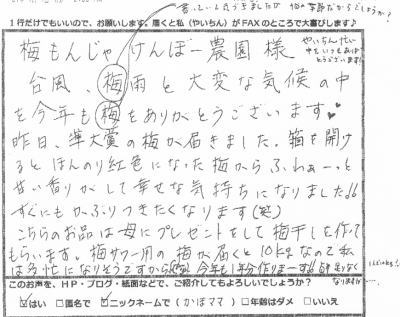 書いていて気づきましたが 梅の季節だからでしょうか？
1行だけでもいいので、お願いします。届くと私（やいちん）がFAXのところで大喜びします♪
梅もんじゃけんぼー農園 様
やいちん忙しい中をいつもありがとうございます!
台風、梅雨と大変な気候の中
を今年も梅をありがとうございます♥
昨日、準大賞の梅が届きました。箱を開け
るとほんのり紅色になった梅からふわぁーっと
甘い香りがして幸せな気持ちになりました♪♪
すぐにもかぶりつきたくなります(笑)
こちらのお品は母にプレゼントをして梅干しを作って
もらいます。梅サワー用の梅が届くと10kgなので私
は多忙になりそうですから 今年も1年分作りまーす
このお声を、HP・ブログ・紙面などで、ご紹介してもよろしいでしょうか？
☑はい □匿名で ☑ニックネームで（かぼママ） □年齢はダメ □いいえ